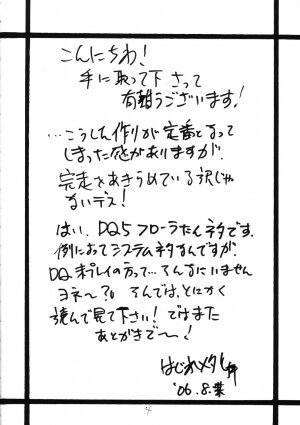 こんにちわ!
手に取って下さって
有難うございます!
…こうした作りが定番となって
しまった感がありますが、
完走をあきらめている訳じゃ
ないデス!
はい、DQ5フローラたんネタです。
例によってシステムネタなんですが、
DQ未プレイの方って…そんなにいません
ヨネ〜?。 そんでは、とにかく
読んで見て下さい! ではまた
あとがきで〜!
はじめメタル
'06.8.
4